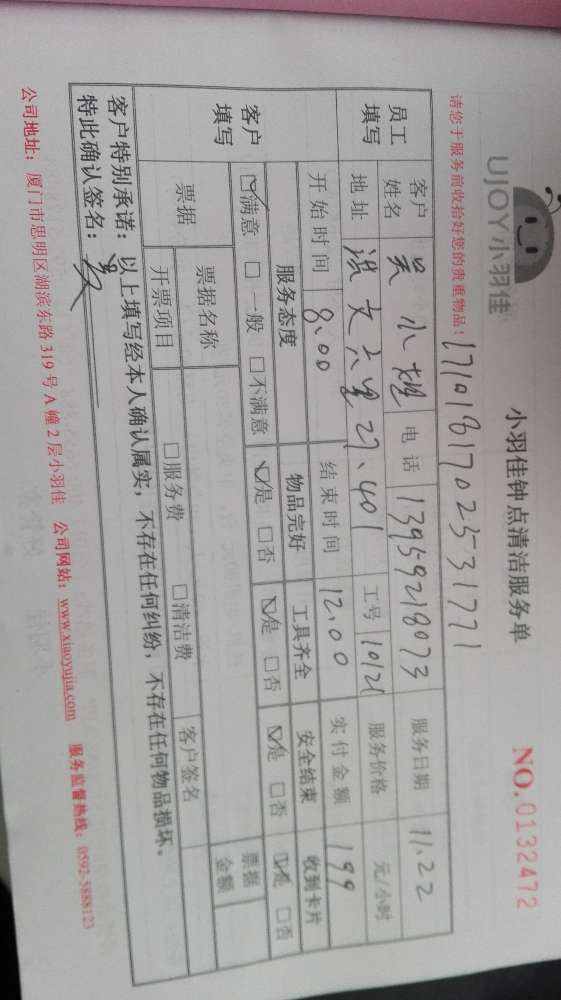 UJOY小羽佳
小羽佳钟点清洁服务单
NO.0132472
请您于服务前收拾好您的贵重物品！
17101817023531771
员工填写 客户姓名 吴小姐 电话 13959218073 服务日期 11.22
地址 401 工号 服务价格 元/小时
开始时间 8.00 结束时间 12.00 实付金额 199
客户填写 服务态度 物品完好 工具齐全 安全结束 收到卡片
☑满意 □一般 □不满意 ☑是 □否 ☑是 □否 ☑是 □否 ☑是 □否
票据 票据名称 票据金额
开票项目 □服务费 □清洁费 客户签名
客户特别承诺：以上填写经本人确认属实，不存在任何纠纷，不存在任何物品损坏。
特此确认签名：
公司地址：厦门市思明区湖滨东路319号A幢2层小羽佳 公司网站：www.xiaoyujia.com 服务监督热线：0592-5888123